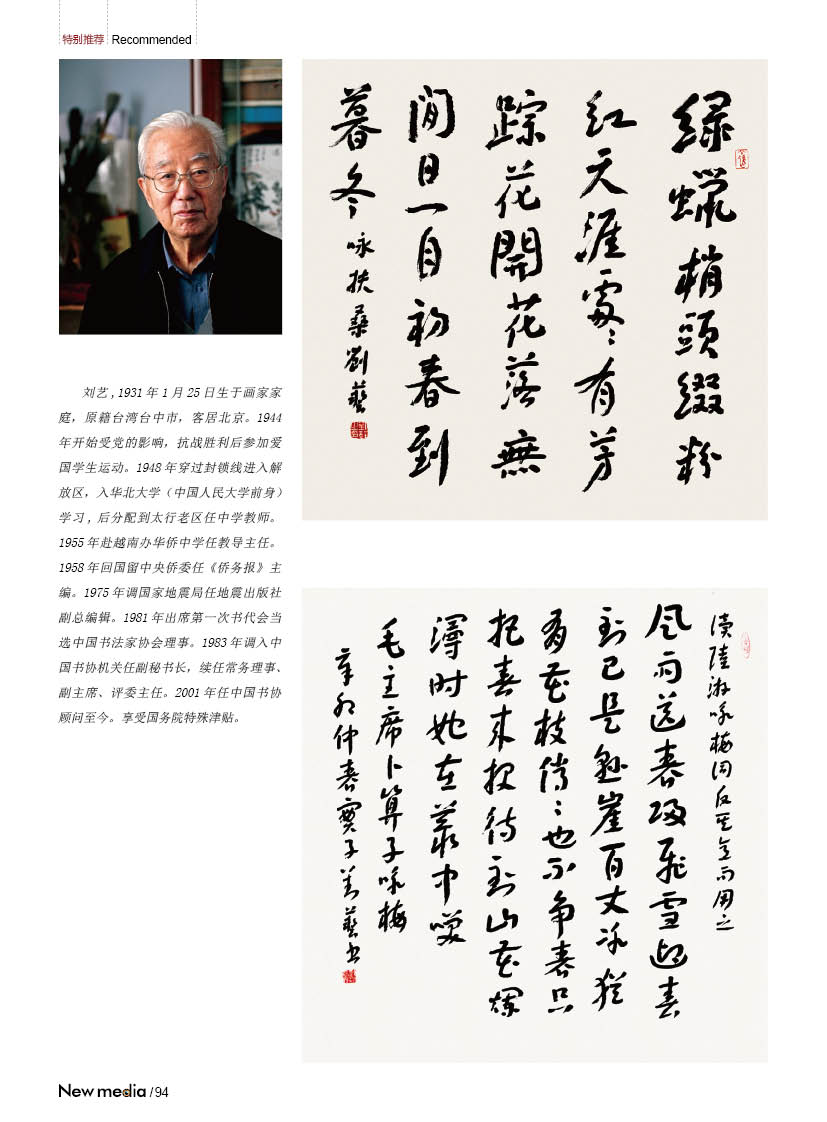 特别推荐 Recommended
刘艺,1931年1月25日生于画家家
庭，原籍台湾台中市，客居北京。1944
年开始受党的影响，抗战胜利后参加爱
国学生运动。1948年穿过封锁线进入解
放区，入华北大学（中国人民大学前身）
学习,后分配到太行老区任中学教师。
1955年赴越南办华侨中学任教导主任。
1958年回国留中央侨委任《侨务报》主
编。1975年调国家地震局任地震出版社
副总编辑。1981年出席第一次书代会当
选中国书法家协会理事。1983年调入中
国书协机关任副秘书长，续任常务理事、
副主席、评委主任。2001年任中国书协
顾问至今。享受国务院特殊津贴。
绿蠟梢頭綴粉
红天涯處〻有芳
踪花開花落無
間日一自初春到
暮冬 咏扶桑劉藝
读陸游咏梅词反其意而用之
风雨送春归飛雪迎春
到已是懸崖百丈冰犹
有花枝俏〻也不争春只
把春来报待到山花爛
漫时她在叢中笑
毛主席卜算子咏梅
辛巳仲春
藝书
New media / 94